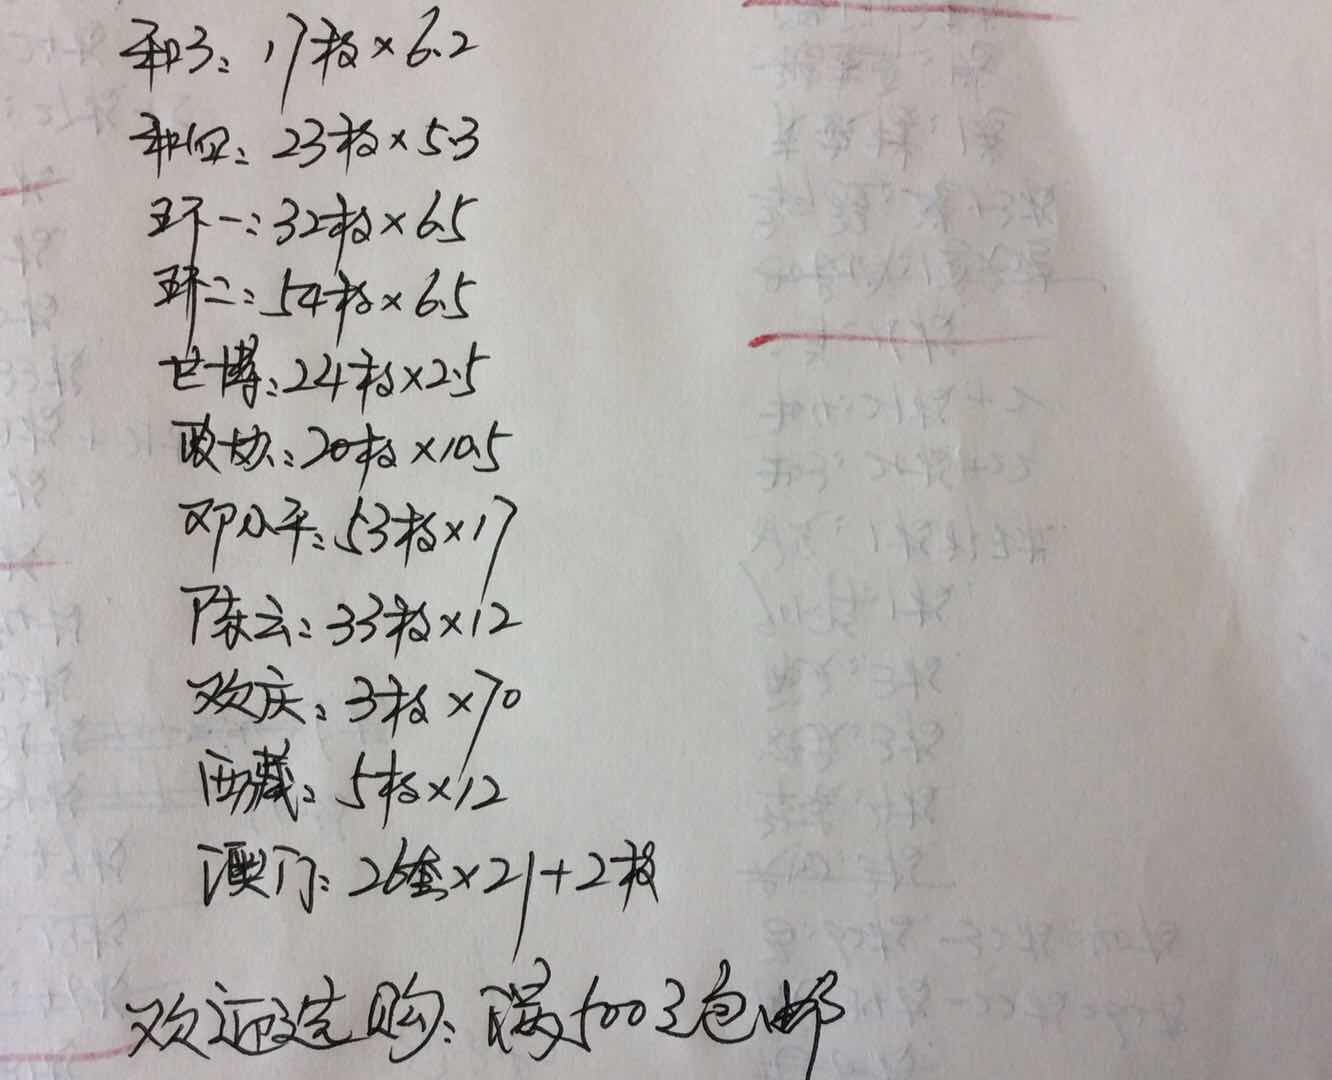 和3：17枚×6.2
和四：23枚×5.3
环一：32枚×6.5
环二：54枚×6.5
世博：24枚×2.5
政协：20枚×10.5
邓小平：53枚×17
陈云：33枚×12
欢庆：3枚×70
西藏：5枚×12
澳门：26套×21+2枚
欢迎选购：满500元包邮